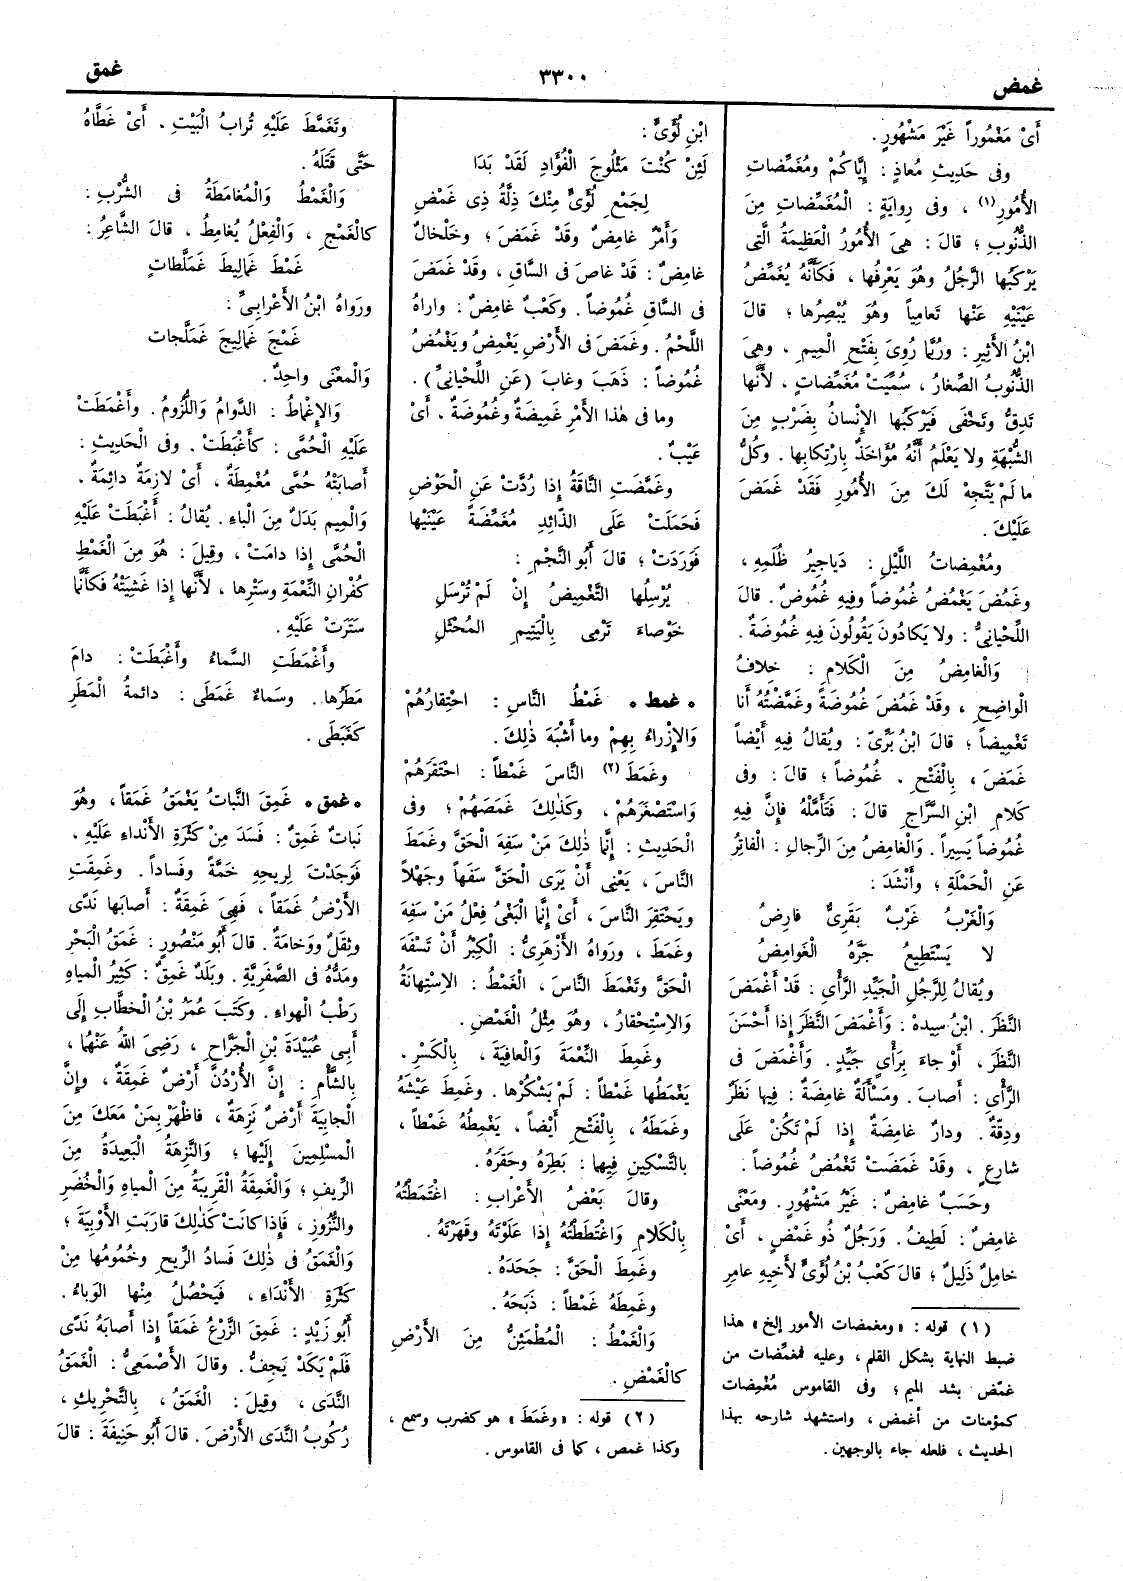 غمض
٣٣٠٠
غمق
أَىْ مَغْمُوراً غَيْرَ مَشْهُورٍ.
وفى حَدِيثِ مُعاذٍ : إِيَّاكُمْ ومُغَمِّضاتِ
الأُمُورِ (١) ، وفى رِوايَةٍ : الْمُغَمِّضاتِ مِنَ
الذُّنُوبِ ؛ قالَ : هِىَ الأُمُورُ الْعَظِيمَةُ الَّتِى
يَرْكَبُها الرَّجُلُ وهُوَ يَعْرِفُها ، فَكَأَنَّهُ يُغَمِّضُ
عَيْنَيْهِ عَنْها تَعامِياً وهُوَ يُبْصِرُها ؛ قالَ
ابْنُ الأَثِيرِ : ورُبَّما رُوِىَ بِفَتْحِ الْمِيمِ ، وهِىَ
الذُّنُوبُ الصِّغارُ ، سُمِّيَتْ مُغَمَّضاتٍ ، لأَنَّها
تَدِقُّ وتَخْفَى فَيَرْكَبُها الإِنْسانُ بِضَرْبٍ مِنَ
الشُّبْهَةِ ولا يَعْلَمُ أَنَّهُ مُؤَاخَذٌ بِارْتِكابِها . وكُلُّ
ما لَمْ يَتَّجِهْ لَكَ مِنَ الأُمُورِ فَقَدْ غَمَضَ
عَلَيْكَ .
ومُغْمِضاتُ اللَّيْلِ : دَياجِيرُ ظُلَمِهِ ،
وغَمَضَ يَغْمُضُ غُمُوضاً وفِيهِ غُمُوضٌ . قالَ
اللِّحْيانِىُّ : ولا يَكادُونَ يَقُولُونَ فِيهِ غُمُوضَةٌ .
والْغامِضُ مِنَ الْكَلامِ : خِلافُ
الْواضِحِ ، وقَدْ غَمُضَ غُمُوضَةً وغَمَّضْتُهُ أَنا
تَغْمِيضاً ؛ قالَ ابْنُ بَرِّىّ : ويُقالُ فِيهِ أَيْضاً
غَمَضَ ، بِالْفَتْحِ . غُمُوضاً ؛ قالَ : وفى
كَلامِ ابْنِ السَّرَّاجِ قالَ : فَتَأَمَّلْهُ فَإِنَّ فِيهِ
غُمُوضاً يَسِيراً . والْغامِضُ مِنَ الرِّجالِ : الْفاتِرُ
عَنِ الْحَمْلَةِ ؛ وأَنْشَدَ :
والْغَرْبُ غَرْبٌ بَقَرِىٌّ فارِضُ
لا يَسْتَطِيعُ جَرَّهُ الْغَوامِضُ
ويُقالُ لِلرَّجُلِ الْجَيِّدِ الرَّأْيِ : قَدْ أَغْمَضَ
النَّظَرَ . ابْنُ سِيدهْ : وأَغْمَضَ النَّظَرَ إِذا أَحْسَنَ
النَّظَرَ ، أَوْ جاءَ بِرَأْيٍ جَيِّدٍ . وأَغْمَضَ فى
الرَّأْيِ : أَصابَ . ومَسْأَلَةٌ غامِضَةٌ : فِيها نَظَرٌ
ودِقَّةٌ . ودارٌ غامِضَةٌ إِذا لَمْ تَكُنْ عَلَى
شارِعٍ ، وقَدْ غَمَضَتْ تَغْمُضُ غُمُوضاً .
وحَسَبٌ غامِضٌ : غَيْرُ مَشْهُورٍ . ومَعْنًى
غامِضٌ : لَطِيفٌ . ورَجُلٌ ذُو غَمْضٍ ، أَىْ
خامِلٌ ذَلِيلٌ ؛ قالَ كَعْبُ بْنُ لُؤَىٍّ لأَخِيهِ عامِرِ
(١) قوله : « ومغمضات الأمور إلخ » هذا
ضبط النهاية بشكل القلم ، وعليه فمغمِّضات من
غمّض بشد الميم ؛ وفى القاموس مُغْمِضات
كمؤمنات من أغمض ، واستشهد شارحه بهذا
الحديث ، فلعله جاء بالوجهين .
ابْنِ لُؤَىٍّ :
لَئِنْ كُنْتَ مَثْلُوجَ الْفُؤَادِ لَقَدْ بَدَا
لِجَمْعِ لُؤَىٍّ مِنْكَ ذِلَّةُ ذِى غَمْضِ
وأَمْرٌ غامِضٌ وقَدْ غَمَضَ ؛ وخَلْخالٌ
غامِضٌ : قَدْ غاصَ فى السَّاقِ ، وقَدْ غَمَضَ
فى السَّاقِ غُمُوضاً . وكَعْبٌ غامِضٌ : واراهُ
اللَّحْمُ . وغَمَضَ فى الأَرْضِ يَغْمِضُ ويَغْمُضُ
غُمُوضاً : ذَهَبَ وغابَ (عَنِ اللِّحْيانِىِّ) .
وما فى هٰذا الأَمْرِ غَمِيضَةٌ وغُمُوضَةٌ ، أَىْ
عَيْبٌ .
وغَمَّضَتِ النَّاقَةُ إِذا رُدَّتْ عَنِ الْحَوْضِ
فَحَمَلَتْ عَلَى الذَّائِدِ مُغَمِّضَةً عَيْنَيْها
فَوَرَدَتْ ؛ قالَ أَبُو النَّجْمِ :
يُرْسِلُها التَّغْمِيضُ إِنْ لَمْ تُرْسَلِ
خَوْصاءَ تَرْمِى بِالْيَتِيمِ المُحْثَلِ
• غمط • غَمْطُ النَّاسِ : احْتِقارُهُمْ
والإِزْراءُ بِهِمْ وما أَشْبَهَ ذٰلِكَ .
وغَمَطَ (٢) النَّاسَ غَمْطاً : احْتَقَرَهُمْ
واسْتَصْغَرَهُمْ ، وكَذٰلِكَ غَمَصَهُمْ ؛ وفى
الْحَدِيثِ : إِنَّما ذٰلِكَ مَنْ سَفِهَ الْحَقَّ وغَمَطَ
النَّاسَ ، يَعْنِى أَنْ يَرَى الْحَقَّ سَفَهاً وجَهْلاً
ويَحْتَقِرَ النَّاسَ ، أَىْ إِنَّما الْبَغْىُ فِعْلُ مَنْ سَفِهَ
وغَمَطَ ، ورَواهُ الأَزْهَرِىُّ : الْكِبْرُ أَنْ تَسْفَهَ
الْحَقَّ وتَغْمَطَ النَّاسَ ، الْغَمْطُ : الاسْتِهانَةُ
والاسْتِحْقارُ ، وهُوَ مِثْلُ الْغَمْصِ .
وغَمِطَ النِّعْمَةَ والْعافِيَةَ ، بِالْكَسْرِ .
يَغْمَطُها غَمْطاً : لَمْ يَشْكُرْها . وغَمِطَ عَيْشَهُ
وغَمَطَهُ ، بِالْفَتْحِ أَيْضاً ، يَغْمِطُهُ غَمْطاً ،
بِالتَّسْكِينِ فِيهِما : بَطِرَهُ وحَقَرَهُ .
وقالَ بَعْضُ الأَعْرابِ : اغْتَمَطْتُهُ
بِالْكَلامِ واغْتَطَطْتُهُ إِذا عَلَوْتَهُ وقَهَرْتَهُ .
وغَمِطَ الْحَقَّ : جَحَدَهُ .
وغَمِطَهُ غَمْطاً : ذَبَحَهُ .
والْغَمْطُ : الْمُطْمَئِنُّ مِنَ الأَرْضِ
كالْغَمْضِ .
(٢) قوله : « وغَمَطَ » هو كضرب وسمع ،
وكذا غمص ، كما فى القاموس .
وتَغَمَّطَ عَلَيْهِ تُرابُ الْبَيْتِ . أَىْ غَطَّاهُ
حَتَّى قَتَلَهُ .
والْغَمْطُ والْمُغامَطَةُ فى الشُّرْبِ :
كالْغَمْجِ ، والْفِعْلُ يُغامِطُ ، قالَ الشَّاعِرُ :
غَمْطَ غَمالِيطَ غَمَلَّطاتٍ
ورَواهُ ابْنُ الأَعْرابِىِّ :
غَمْجَ غَمالِيجَ غَمَلَّجات
والْمَعْنَى واحِدٌ .
والإِغْماطُ : الدَّوامُ واللُّزُومُ . وأَغْمَطَتْ
عَلَيْهِ الْحُمَّى : كأَغْبَطَتْ . وفى الْحَدِيثِ :
أَصابَتْهُ حُمَّى مُغْمِطَةٌ ، أَىْ لازِمَةٌ دائِمَةٌ .
والْمِيم بَدَلٌ مِنَ الْباءِ . يُقالُ : أَغْبَطَتْ عَلَيْهِ
الْحُمَّى إِذا دامَتْ ، وقِيلَ : هُوَ مِنَ الْغَمْطِ
كُفْرانِ النِّعْمَةِ وسَتْرِها ، لأَنَّها إِذا غَشِيَتْهُ فَكأَنَّما
سَتَرَتْ عَلَيْهِ .
وأَغْمَطَتِ السَّماءُ وأَغْبَطَتْ : دامَ
مَطَرُها . وسَماءٌ غَمَطَى : دائِمَةُ الْمَطَرِ
كَغَبَطَى .
• غمق • غَمِقَ النَّباتُ يَغْمَقُ غَمَقاً ، وهُوَ
نَباتٌ غَمِقٌ : فَسَدَ مِنْ كَثْرَةِ الأَنْداءِ عَلَيْهِ ،
فَوَجَدْتَ لِرِيحِهِ خَمَّةً وفَساداً . وغَمِقَتِ
الأَرْضُ غَمَقاً ، فَهِىَ غَمِقَةٌ : أَصابَها نَدًى
وثِقَلٌ ووَخامَةٌ . قالَ أَبُو مَنْصُورٍ : غَمَقُ الْبَحْرِ
ومَدُّهُ فى الصَّفَرِيَّةِ . وبَلَدٌ غَمِقٌ : كَثِيرُ الْمِياهِ
رَطْبُ الْهواءِ . وكَتَبَ عُمَرُ بْنُ الْخطَّابِ إِلَى
أَبِى عُبَيْدَةَ بْنِ الْجَرَّاحِ ، رَضِىَ اللهُ عَنْهُما ،
بِالشَّأْمِ : إِنَّ الأُرْدُنَّ أَرْضٌ غَمِقَةٌ ، وإِنَّ
الْجابِيَةَ أَرْضٌ نَزِهَةٌ ، فاظْهَرْ بِمَنْ مَعَكَ مِنَ
الْمسْلِمِينَ إِلَيْها ؛ والنَّزِهَةُ الْبَعِيدَةُ مِنَ
الرِّيفِ ؛ والْغَمِقَةُ الْقَرِيبَةُ مِنَ الْمياهِ والْخُضَرِ
والنُّزُوزِ ، فَإِذا كانَتْ كَذٰلِكَ قارَبَتِ الأَوْبِيَةَ ؛
والْغَمَقُ فى ذٰلِكَ فَسادُ الرِّيحِ وخُمُومُها مِنْ
كَثْرَةِ الأَنْداءِ ، فَيَحْصُلُ مِنْها الْوَباءُ .
أَبُو زَيْدٍ : غَمِقَ الزَّرْعُ غَمَقاً إِذا أَصابَهُ نَدًى
فَلَمْ يَكَدْ يَجِفُّ . وقالَ الأَصْمَعِىُّ : الْغَمَقُ
النَّدَى ، وقِيلَ : الْغَمَقُ ، بِالتَّحْرِيكِ ،
رُكُوبُ النَّدَى الأَرْضَ . قالَ أَبُو حَنِيفَةَ : قالَ